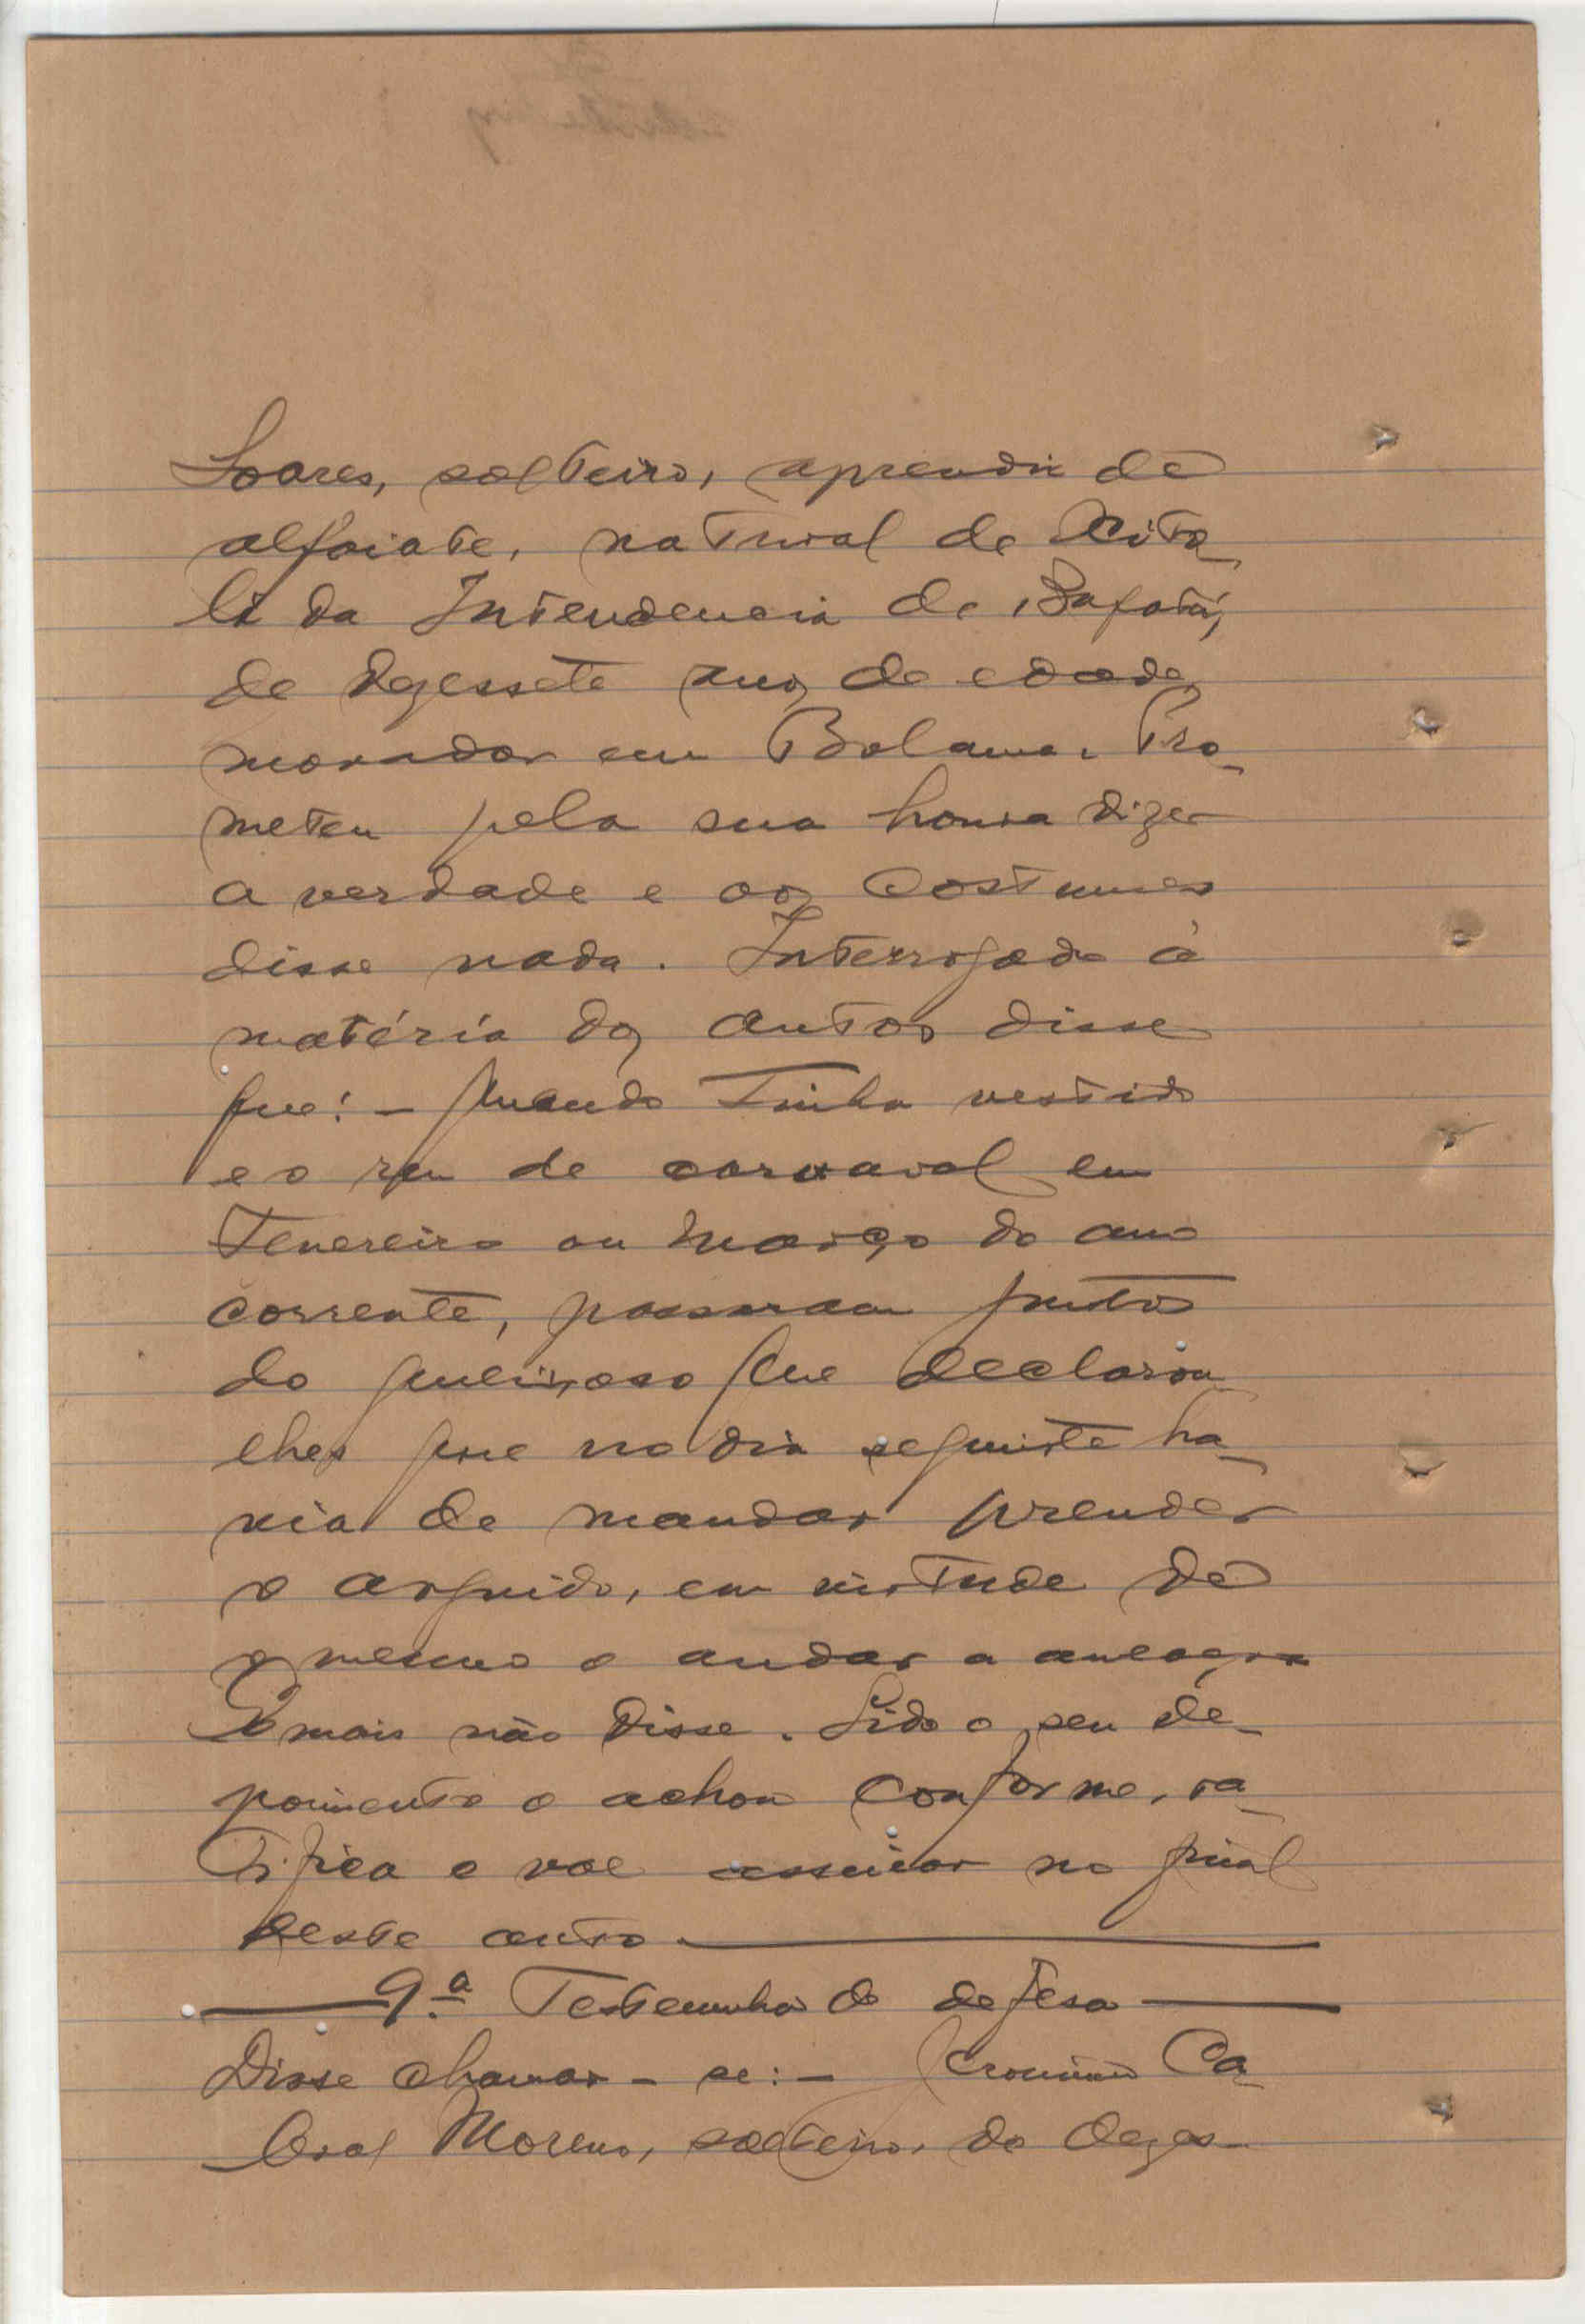 Soares, solteiro, aprendiz de
alfaiate, natural de Xita-
li da Intendencia de Bafatá,
de dezessete anos de edade,
morador em Bolama. Pro-
meteu pela sua honra dizer
a verdade e aos costumes
disse nada. Interrogado á
matéria dos autos disse
que: - Quando tinha vestido
e o reu de carnaval em
Fevereiro ou Março do ano
corrente, passaram juntos
do queixoso que declarou
lhes que no dia seguinte ha-
via de mandar prender
o arguido, em virtude de
o mesmo o andar a ameaçar
E mais não disse. Lido o seu de-
poimento o achou conforme, ra-
tifica e vae assinar no final
deste auto
9.ª Testemunha de defesa
Disse chamar-se: - Jeronimo Ca-
bral Moreno, solteiro, de dezes-